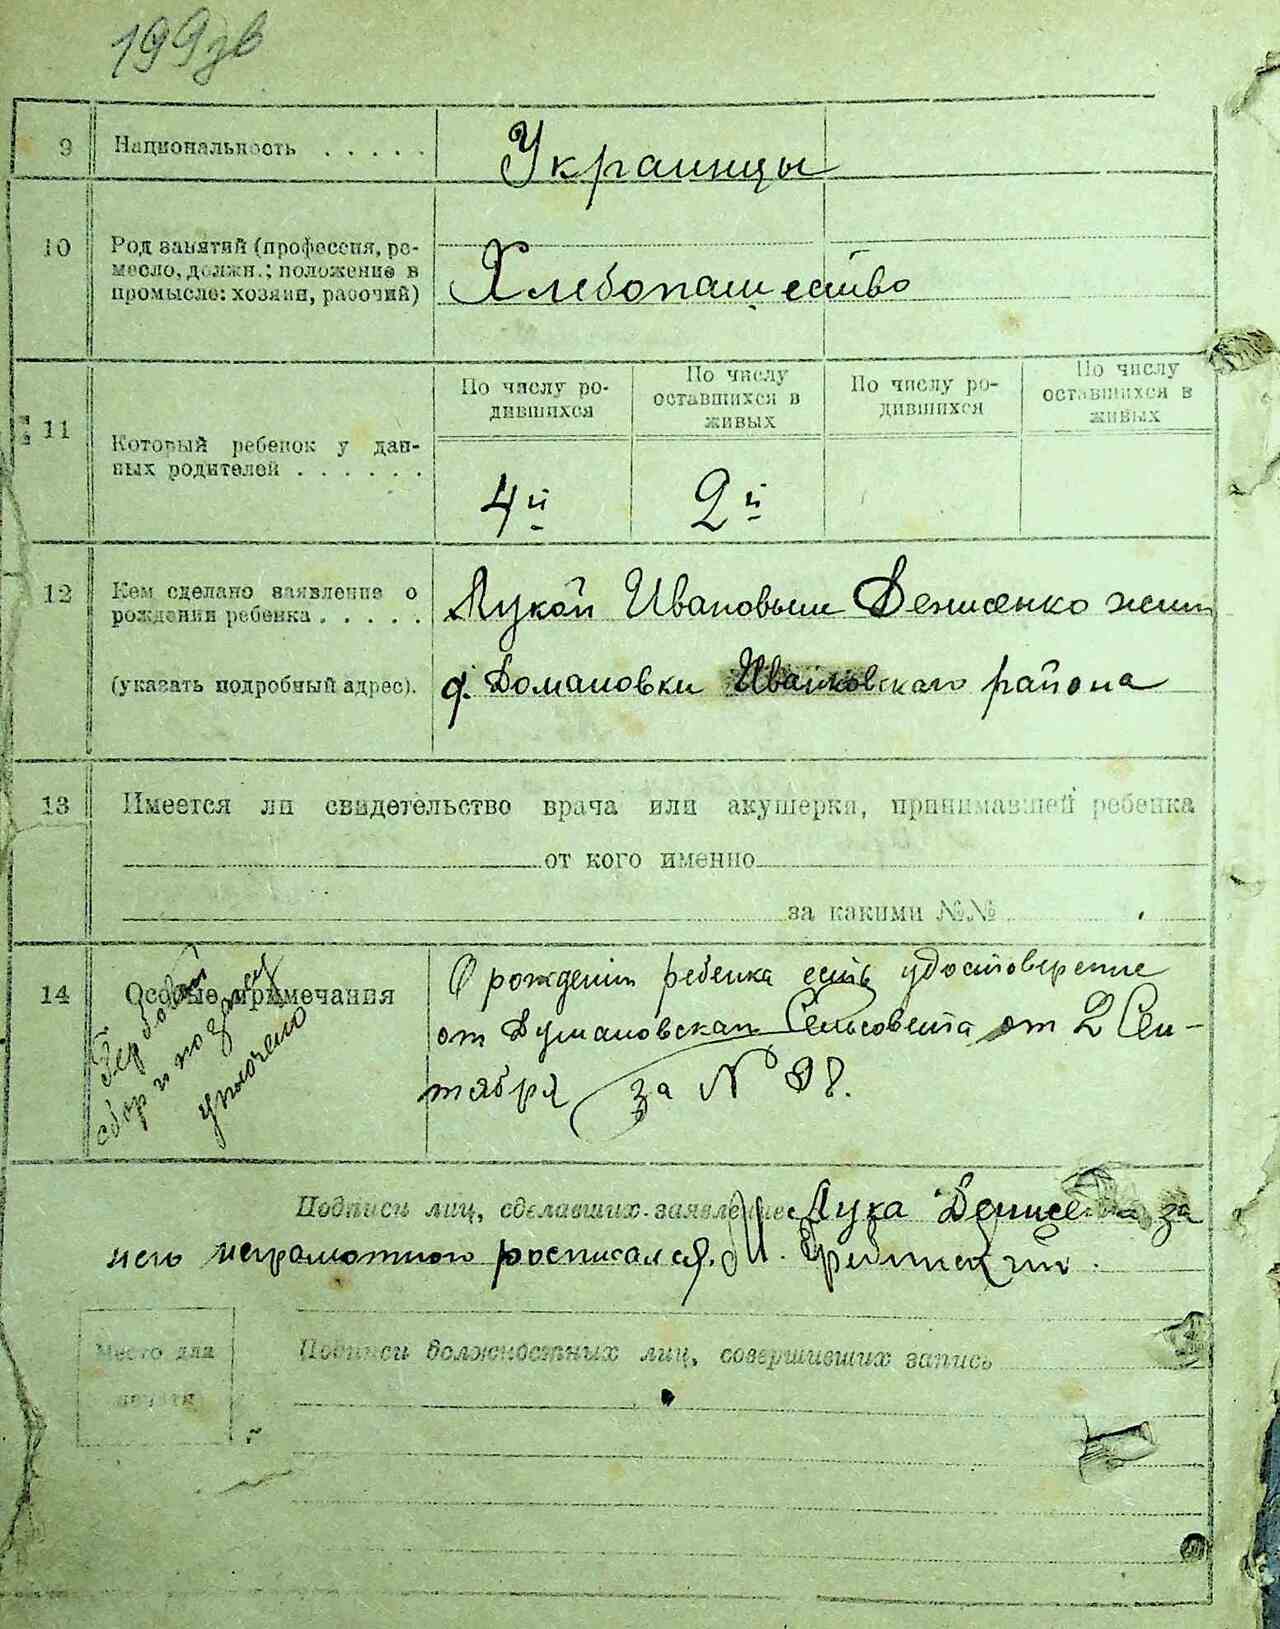 199зв
9 Национальность . . . . . Украинцы
10 Род занятий (профессия, ре-
месло, должн.; положение в
промысле: хозяин, рабочий) Хлебопашество
По числу ро-
дившихся
По числу
оставшихся в
живых
По числу ро-
дившихся
По числу
оставшихся в
живых
11 Который ребенок у дан-
ных родителей . . . . . .
4й 2й
12 Кем сделано заявление о
рождении ребенка . . . . .
Лукой Ивановым Денисенко жит
(указать подробный адрес).
д. Домановки Иванковскаго района
13 Имеется ли свидетельство врача или акушерки, принимавшей ребенка
от кого именно
за какими №№
14 Особые примечания
Гербовый
сбор и по загсу
уплочено
О рождении ребенка есть удостоверение
от Думановская Сельсовета от 2 Сен-
тября за N 98.
Подписи лиц, сделавших заявление Лука Денисенко за
него неграмотного росписался М.
Место для
печати
Подписи должностных лиц, совершивших запись